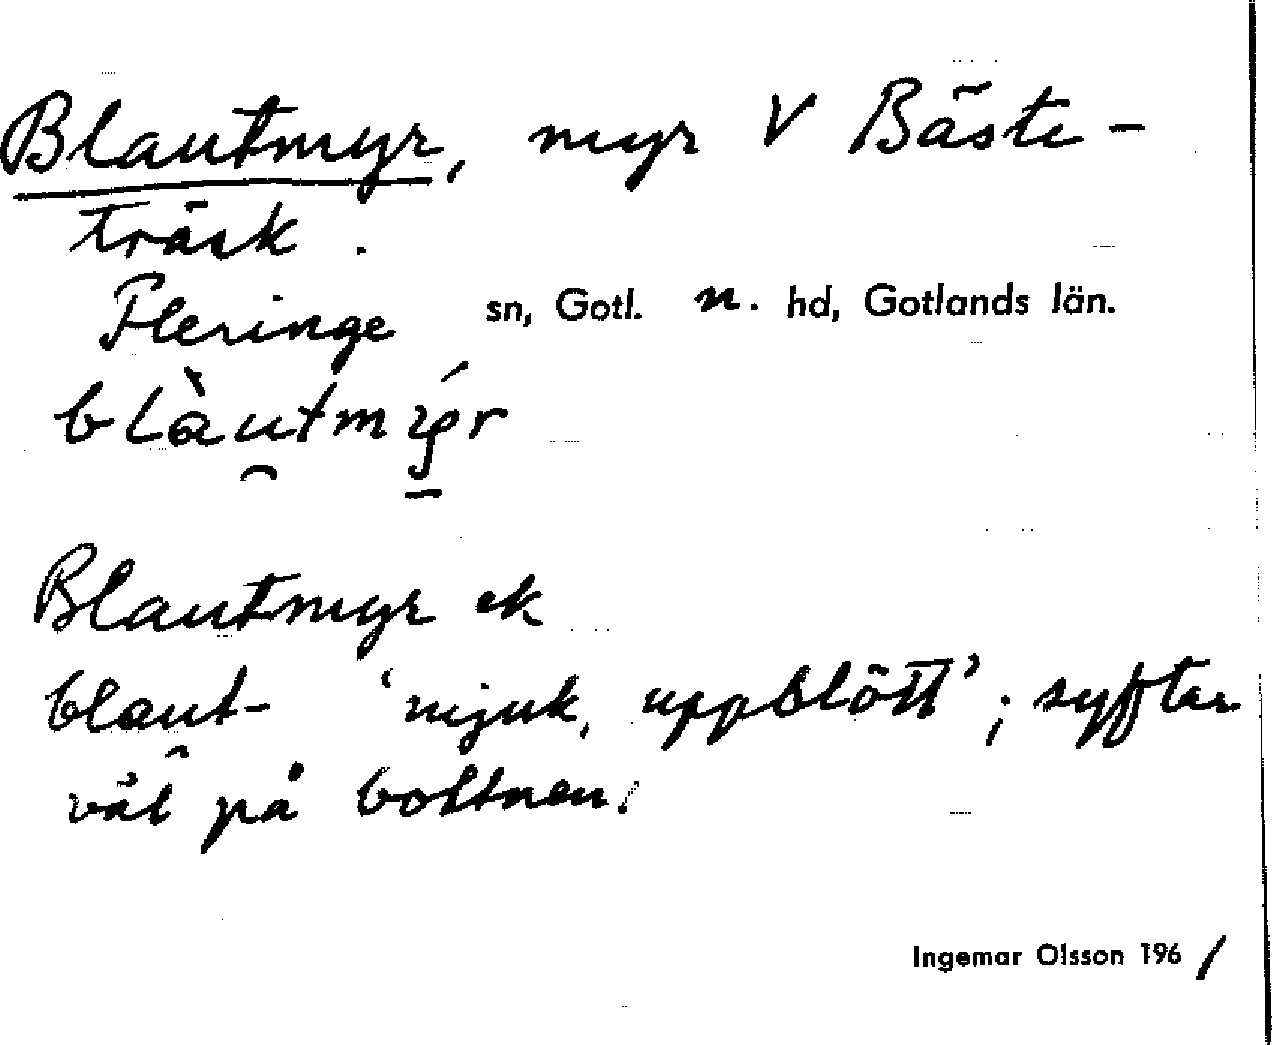 Blautmyr, myr V Bäste-
träsk.
Fleringe sn, Gotl. n. hd, Gotlands län.
blàu̯tmý̱r
Blautmyr ek
blau̯t- 'mjuk, uppblött'; syftar
väl på bottnen.
Ingemar Olsson 1961